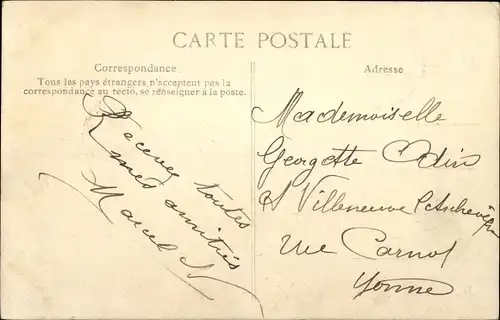 CARTE POSTALE
Correspondance
Tous les pays étrangers n'acceptent pas la
correspondance au recto, se renseigner à la poste.
Recevez toutes
mes amitiés
Marcel N
Adresse
Mademoiselle
Georgette Odin
à Villeneuve l'Archevêque
rue Carnot
Yonne